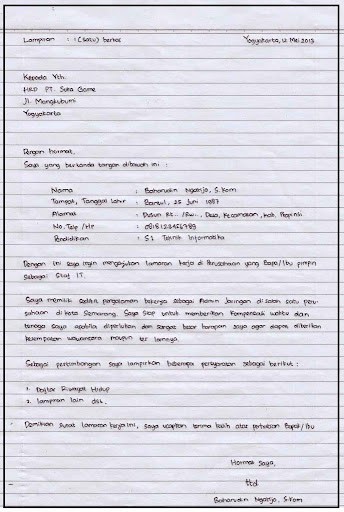 Lampiran : 1 (satu) berkas Yogyakarta, 12 Mei 2013
Kepada Yth.
HRD PT. Suka Game
Jl. Mangkubumi
Yogyakarta
Dengan hormat,
Saya yang bertanda tangan dibawah ini :
Nama : Baharudin Ngatijo, S.Kom
Tempat, Tanggal Lahir : Bantul, 25 Juni 1987
Alamat : Dusun Rt.. /Rw.., Desa, Kecamatan, Kab, Propinsi
No. Telp /Hp : 0818123456789
Pendidikan : S1 Teknik Informatika
Dengan ini saya ingin mengajukan lamaran kerja di Perusahaan yang Bapak/Ibu pimpin
Sebagai Staf IT.
Saya memiliki sedikit pengalaman bekerja sebagai Admin Jaringan di salah satu peru-
sahaan di kota Semarang. Saya siap untuk memberikan kompensasi waktu dan
tenaga saya apabila diperlukan dan sangat besar harapan saya agar dapat diberikan
kesempatan wawancara maupun tes lainnya.
Sebagai pertimbangan saya lampirkan beberapa persyaratan sebagai berikut :
1. Daftar Riwayat Hidup
2. lampiran lain dst.
Demikian surat lamaran kerja ini, saya ucapkan terima kasih atas perhatian Bapak/Ibu
Hormat Saya,
ttd
Baharudin Ngatijo, S.Kom